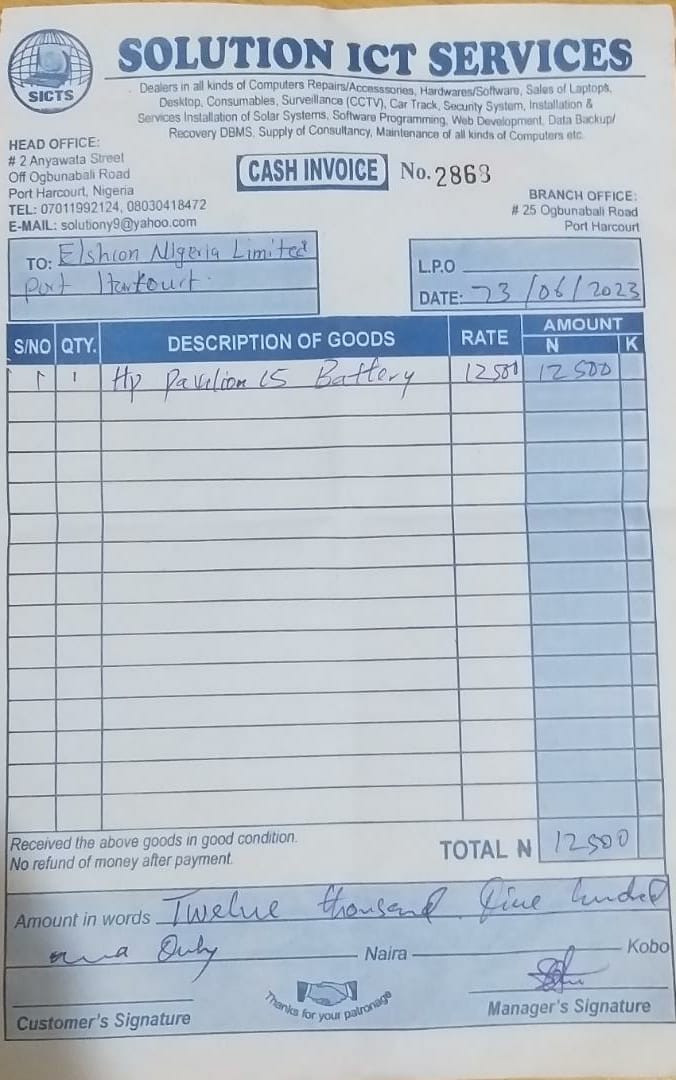 SICTS
SOLUTION ICT SERVICES
Dealers in all kinds of Computers Repairs/Accesssories, Hardwares/Software, Sales of Laptops,
Desktop, Consumables, Surveillance (CCTV), Car Track, Security System, Installation &
Services Installation of Solar Systems, Software Programming, Web Development, Data Backup/
Recovery DBMS, Supply of Consultancy, Maintenance of all kinds of Computers etc.
HEAD OFFICE:
# 2 Anyawata Street
Off Ogbunabali Road
Port Harcourt, Nigeria
TEL: 07011992124, 08030418472
E-MAIL: solutiony9@yahoo.com
CASH INVOICE No. 2868
BRANCH OFFICE:
# 25 Ogbunabali Road
Port Harcourt
TO: Elshcon Nigeria Limited
Port Harcourt.
L.P.O
DATE: 23/06/2023
S/NO QTY. DESCRIPTION OF GOODS RATE AMOUNT
N K
1 1 Hp Pavilion 15 Battery 12500 12500
Received the above goods in good condition.
No refund of money after payment.
TOTAL N 12500
Amount in words Twelve thousand Five hundred
Only Naira Kobo
Thanks for your patronage
Customer's Signature
Manager's Signature